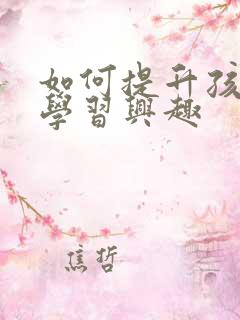 如何提升孩
學習興趣
焦哲